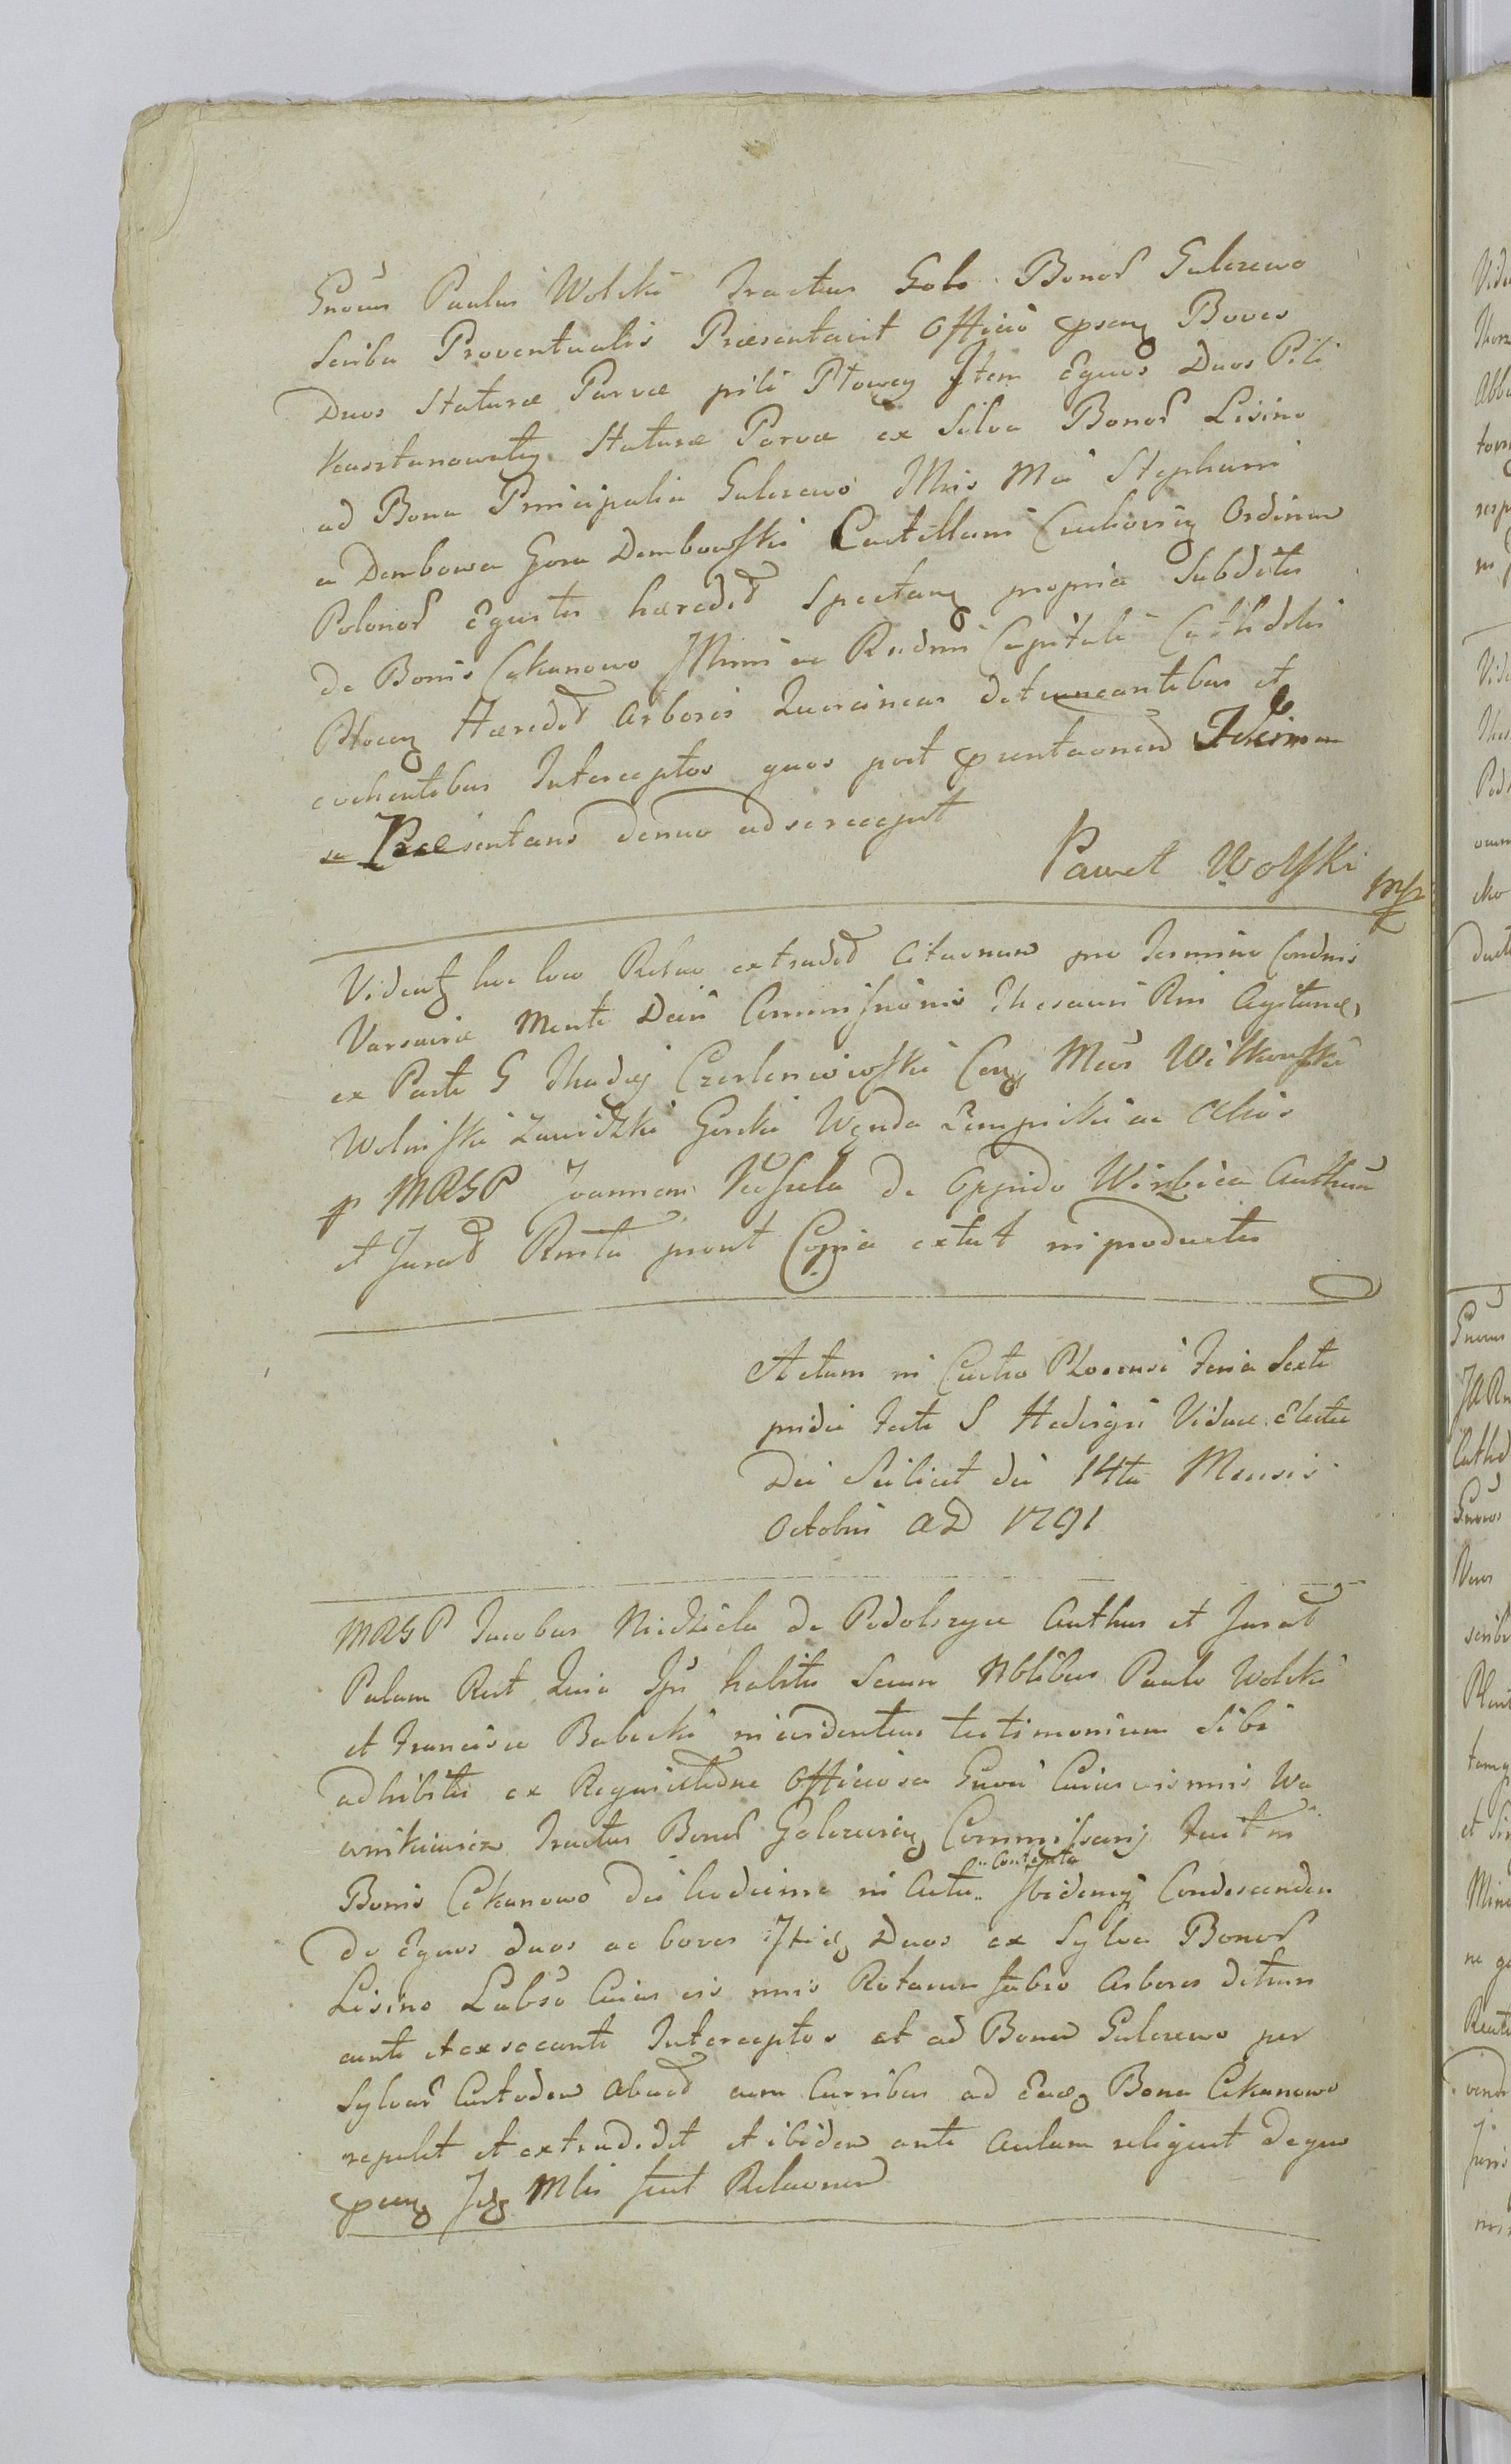 Gnosus Paulus Wolski Tractus Gole Bonor Gulczewo
Scriba Proventualis Præsentavit Officio psenz Boves
Duos Staturæ Parvæ pili Płowey Item Equos Duos Pili
Kasztanowaty Staturæ Parvæ ex Silva Bonor Lisino
ad Bona Principalia Gulczewo Mei Stephani
a Dembowa Gora Dembowski Castellani Czechovien Ordinum
Polonor Equitis hæred spectanz propria Subditis
de Bonis Cekanowo Illmi ac Rndmi Capituli Cathedrlis
Plocenz Hæred Arbores Quercineas detruncantibus et
evehentibus Interceptos quos post pnentaonem Idem
se Præsentans denuo ad se recepit
Paweł Wolski mp
Videatz hoc loco Relao extradit Citaonum pro Termino Condnis
Varsaviæ Mente Commissionis Thesauri Rni
ex Parte G Thadej Czerleniewski Mei Witkowski
Wolinski Zawidzki Gorski Wenda Zempicki ac Alios
p MRGP Joannem de Oppido Wirbica Authum
et Jurat Rnta prout Copia extat in productis
Actum in Castro Plocensi Feria Sexta
pridie Festi S Hedvigis Viduæ Electæ
Dei Scilicet die 14ta Mensis
Octobris AD 1791
MRGP Jacobus Niedziela de Podolszyce Authus et Jurat
Palam Rect Quia Ipse habitis Secum Nblibus Paulo Wolski
et Francisco Babecki in evidentius testimonium Sibi
adhibitis ex Requisitione Officiosa Gnosi Cuiusvis nnis Wa
wrikiewicz Tractus Bonor Golczewienz Commissarij Fuit in
Bonis Cekanowo die hodierna in Actu .. Contenta .. Ibidemqz Condescenden
do Equos duos ac boves Duos ex Sylva Bonor
Lisino Cuius vis nnis Rotarum fabro Arbores detrun
canti et exsecanti Interceptos et ad Bona Gulczewo per
Sylvar Custodem Abact cum Curribus ad Eadz Bona Cekanowo
repulit et extradidit et ibidem ante Aulam reliquit de quo
psenz Idz Mlis fecit Relaonem